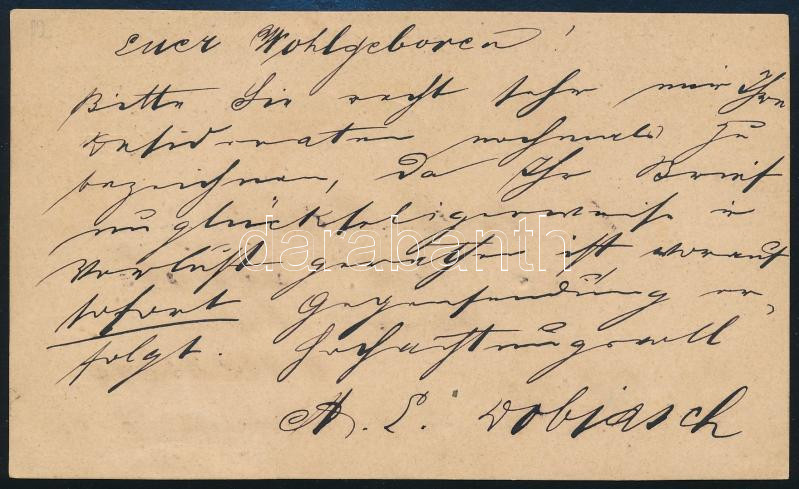 Euer Wohlgeboren!
Bitte Sie recht sehr mir Ihre
Desideraten nochmals zu
bezeichnen, da Ihr Brief
unglückseligerweise in
Verlust gerathen ist worauf
sofort Gegensendung er-
folgt. Hochachtungsvoll
A. E. Dobiasch
darabanth
92